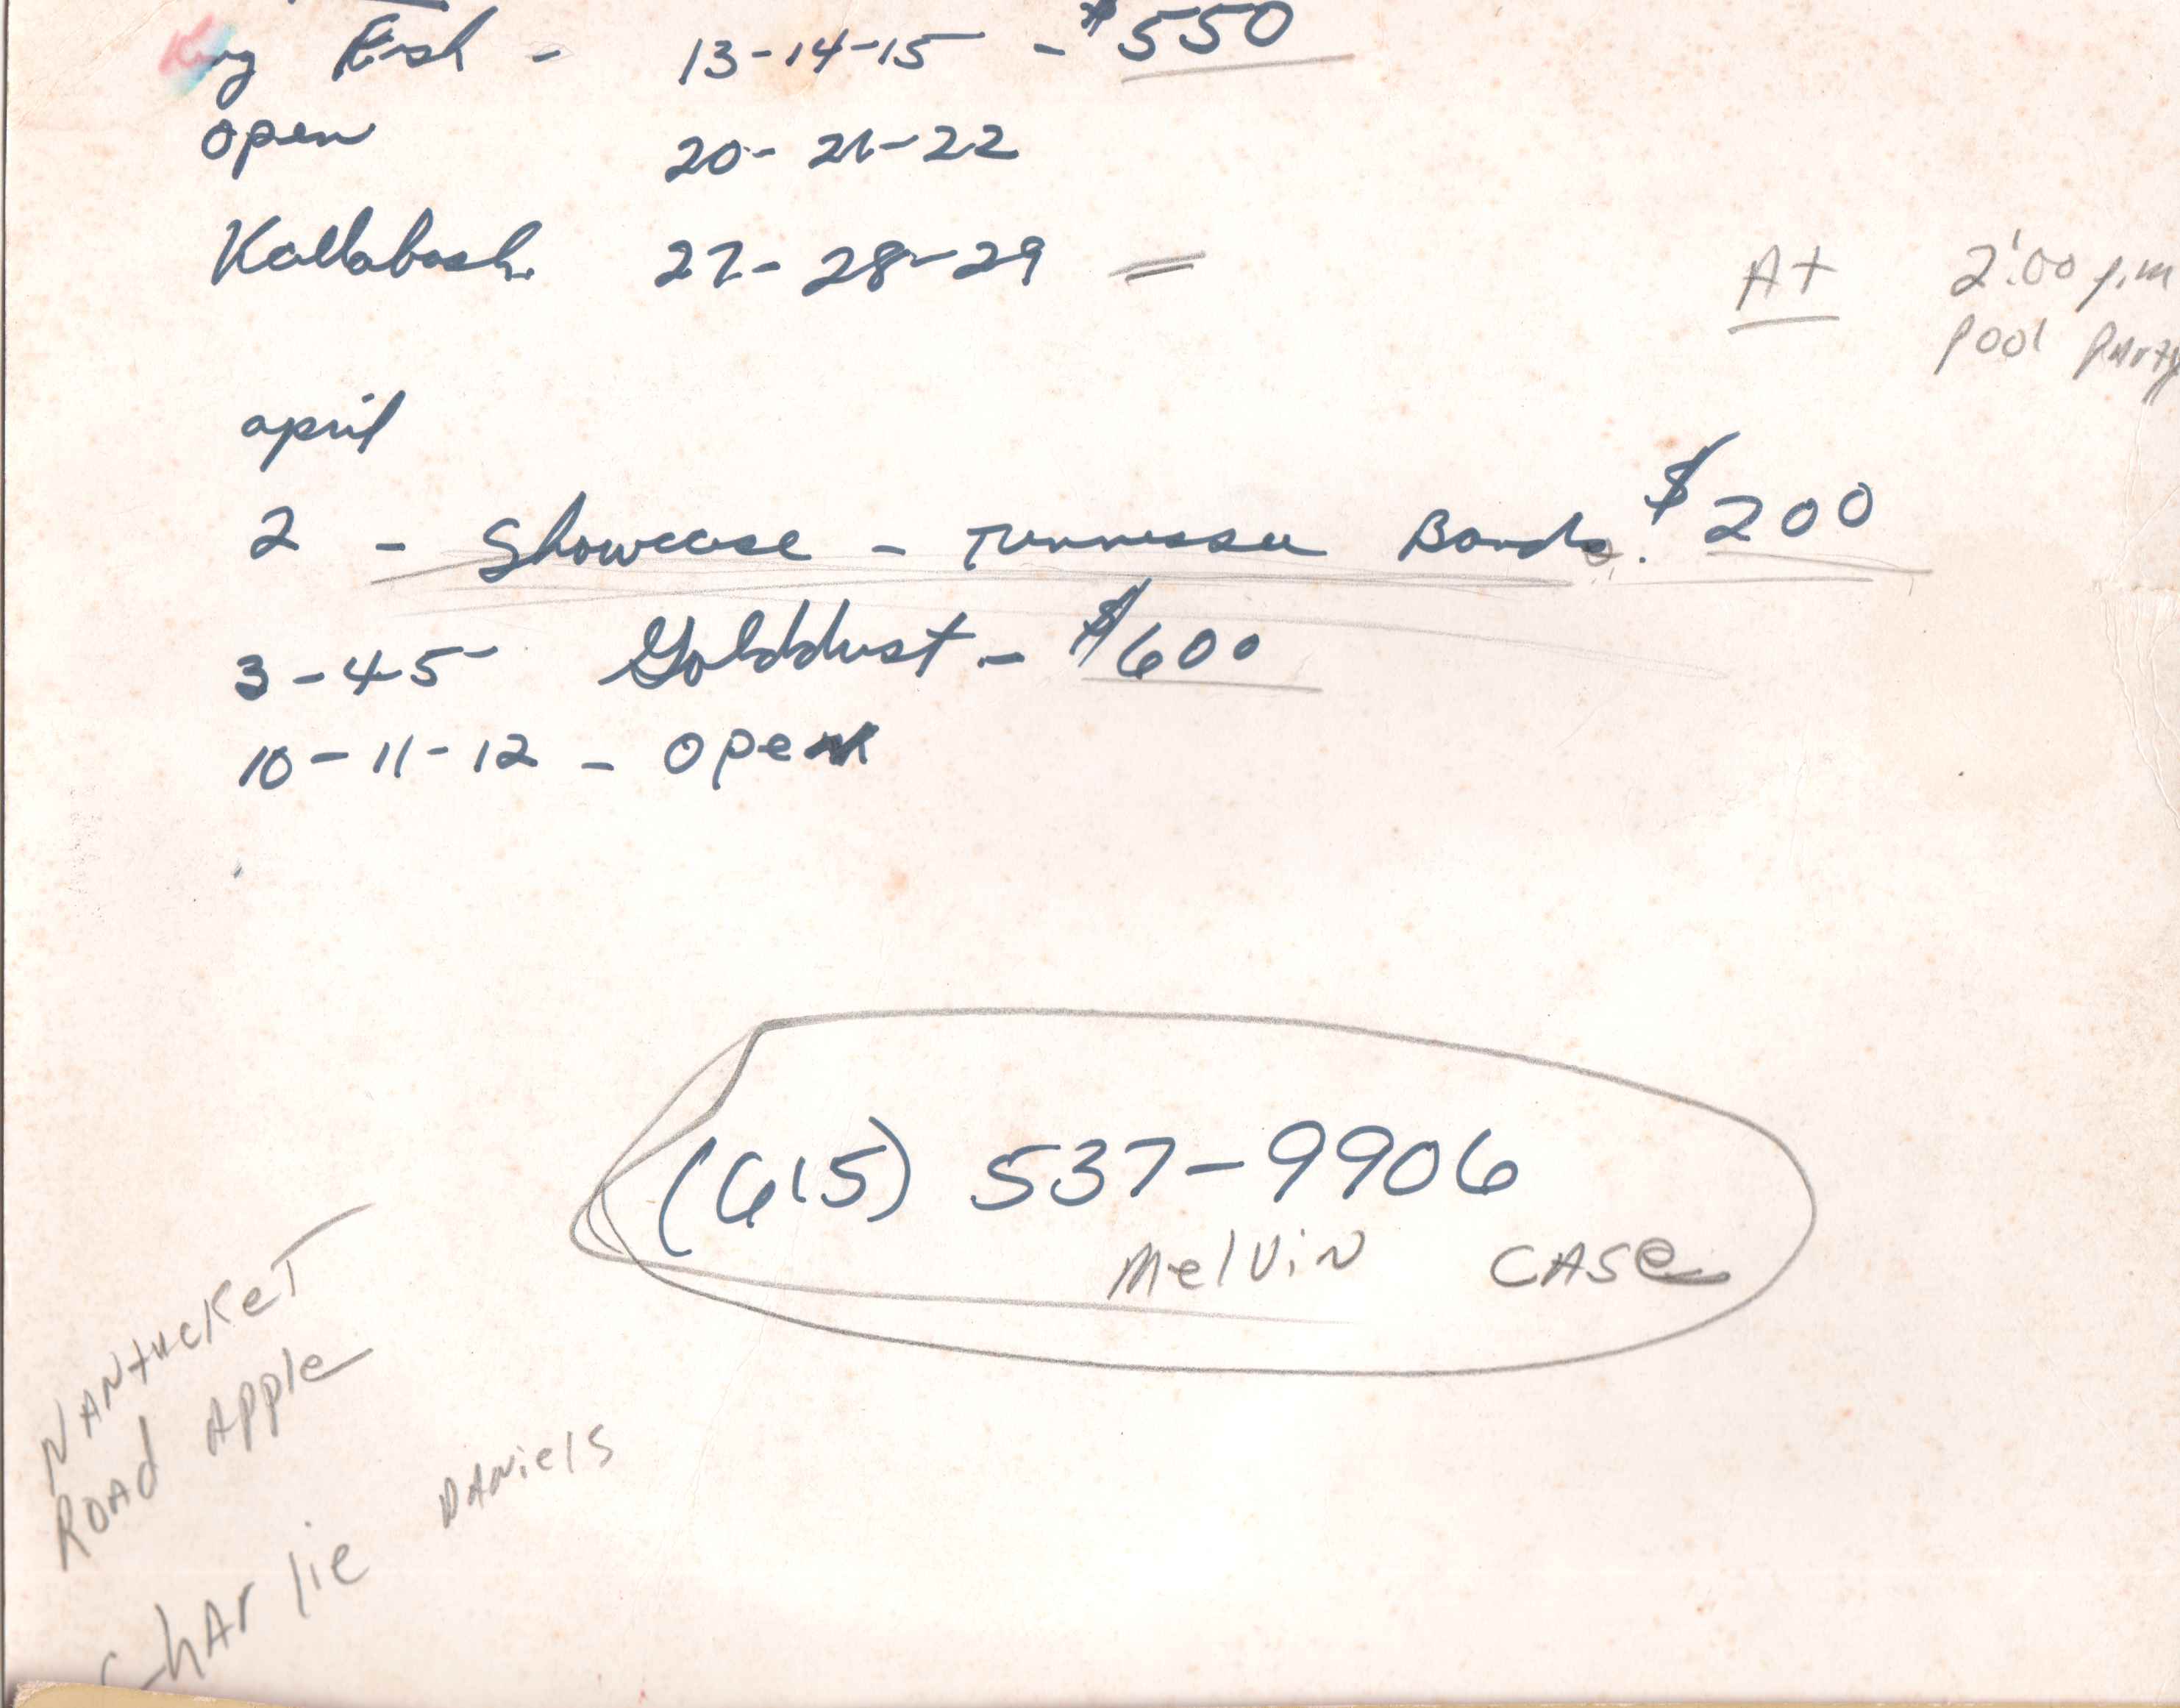 King Fish - 13-14-15 - $550
open 20-21-22
Kallabash 27-28-29 =
At 2:00 p.m
pool party
april
2 - Showcase - Tennessee Bands. $200
3-4-5 Golddust - $600
10-11-12 - open
(615) 537-9906
Melvin Case
NANtucKeT
ROAd Apple
CHArlie DANiels